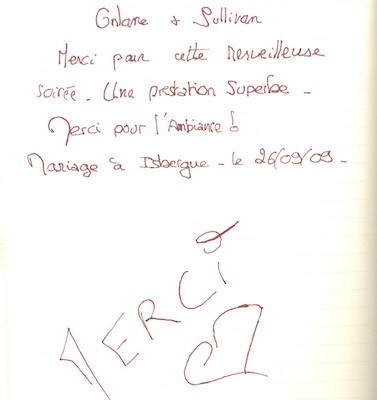 & Sullivan
Merci pour cette merveilleuse
soirée - Une prestation Superbe -
Merci pour l'Ambiance !
Mariage à Isbergue - le 26/09/09 -
MERCI